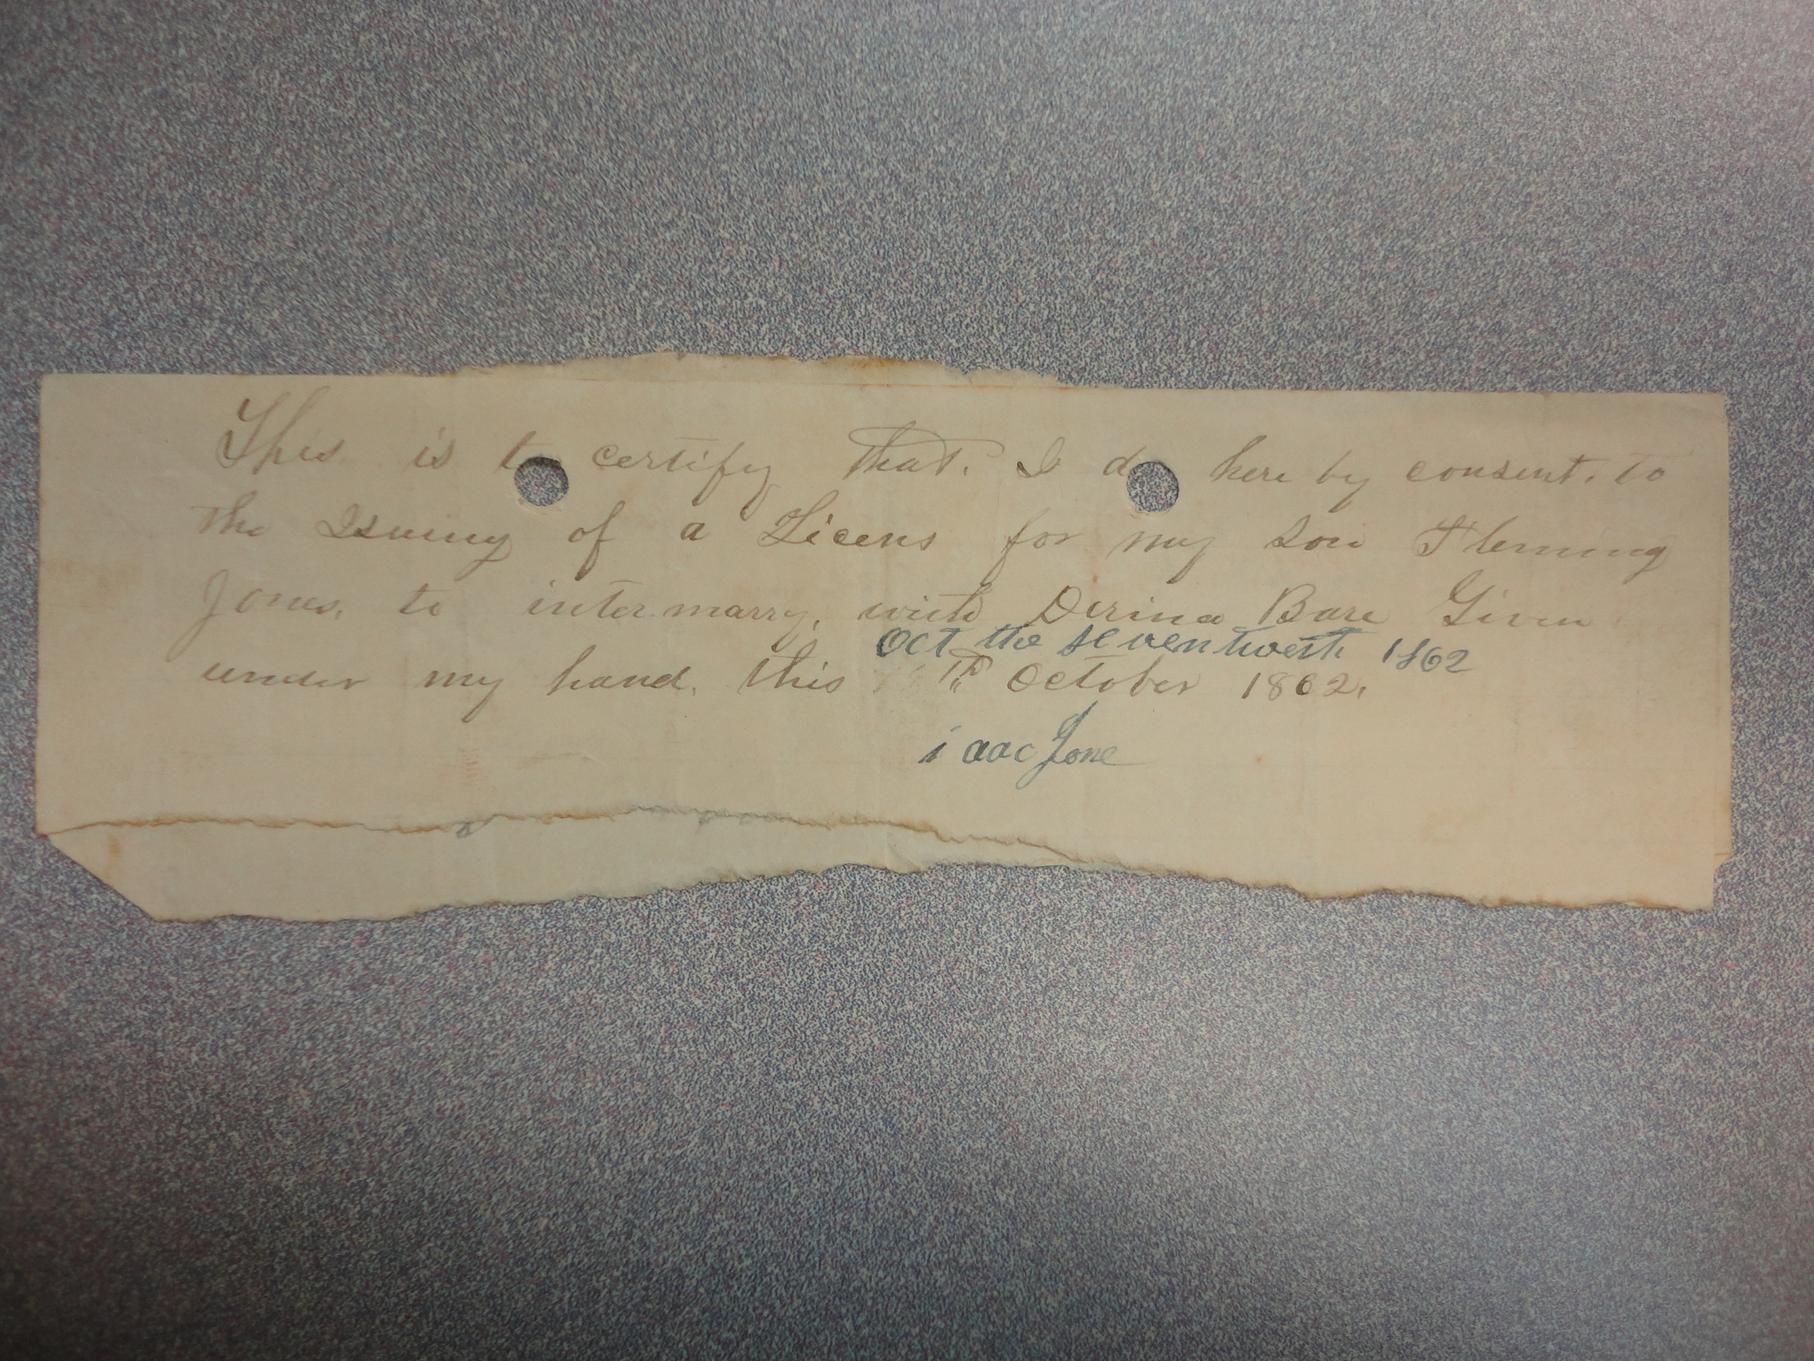 This is to certify that. I do here by consent. to
the Isuing of a Licens for my son Fleming
Jones, to inter marry, with Derina Bare Given
Oct the seventwest 1862
under my hand. this th October 1862.
i aac Jone